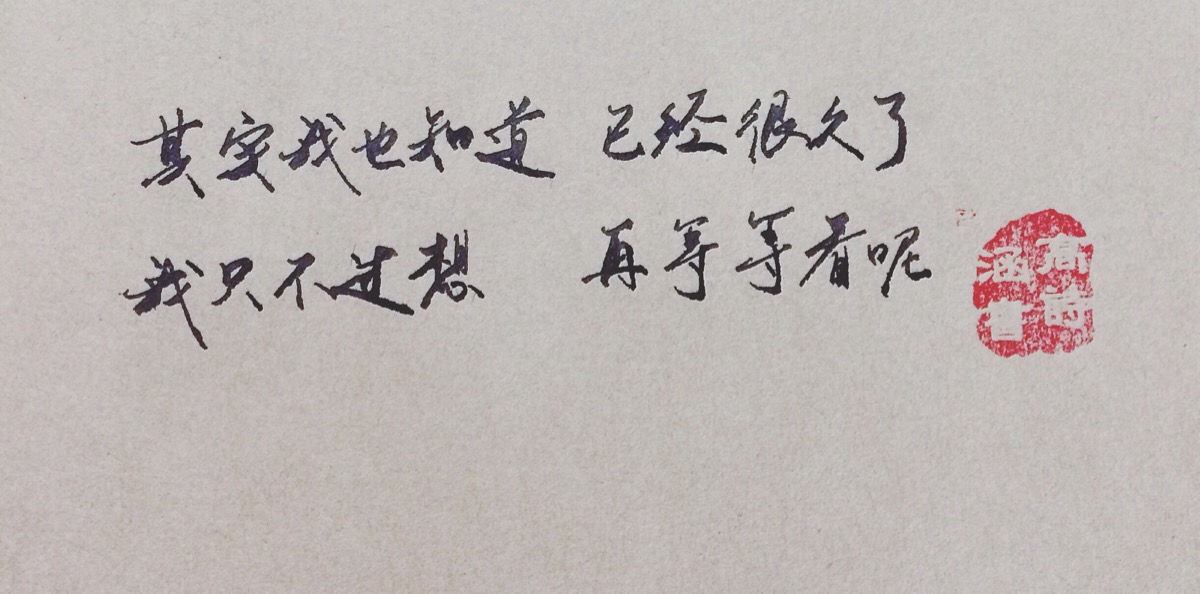 其实我也知道 已经很久了
我只不过想 再等等看呢
高诗涵书